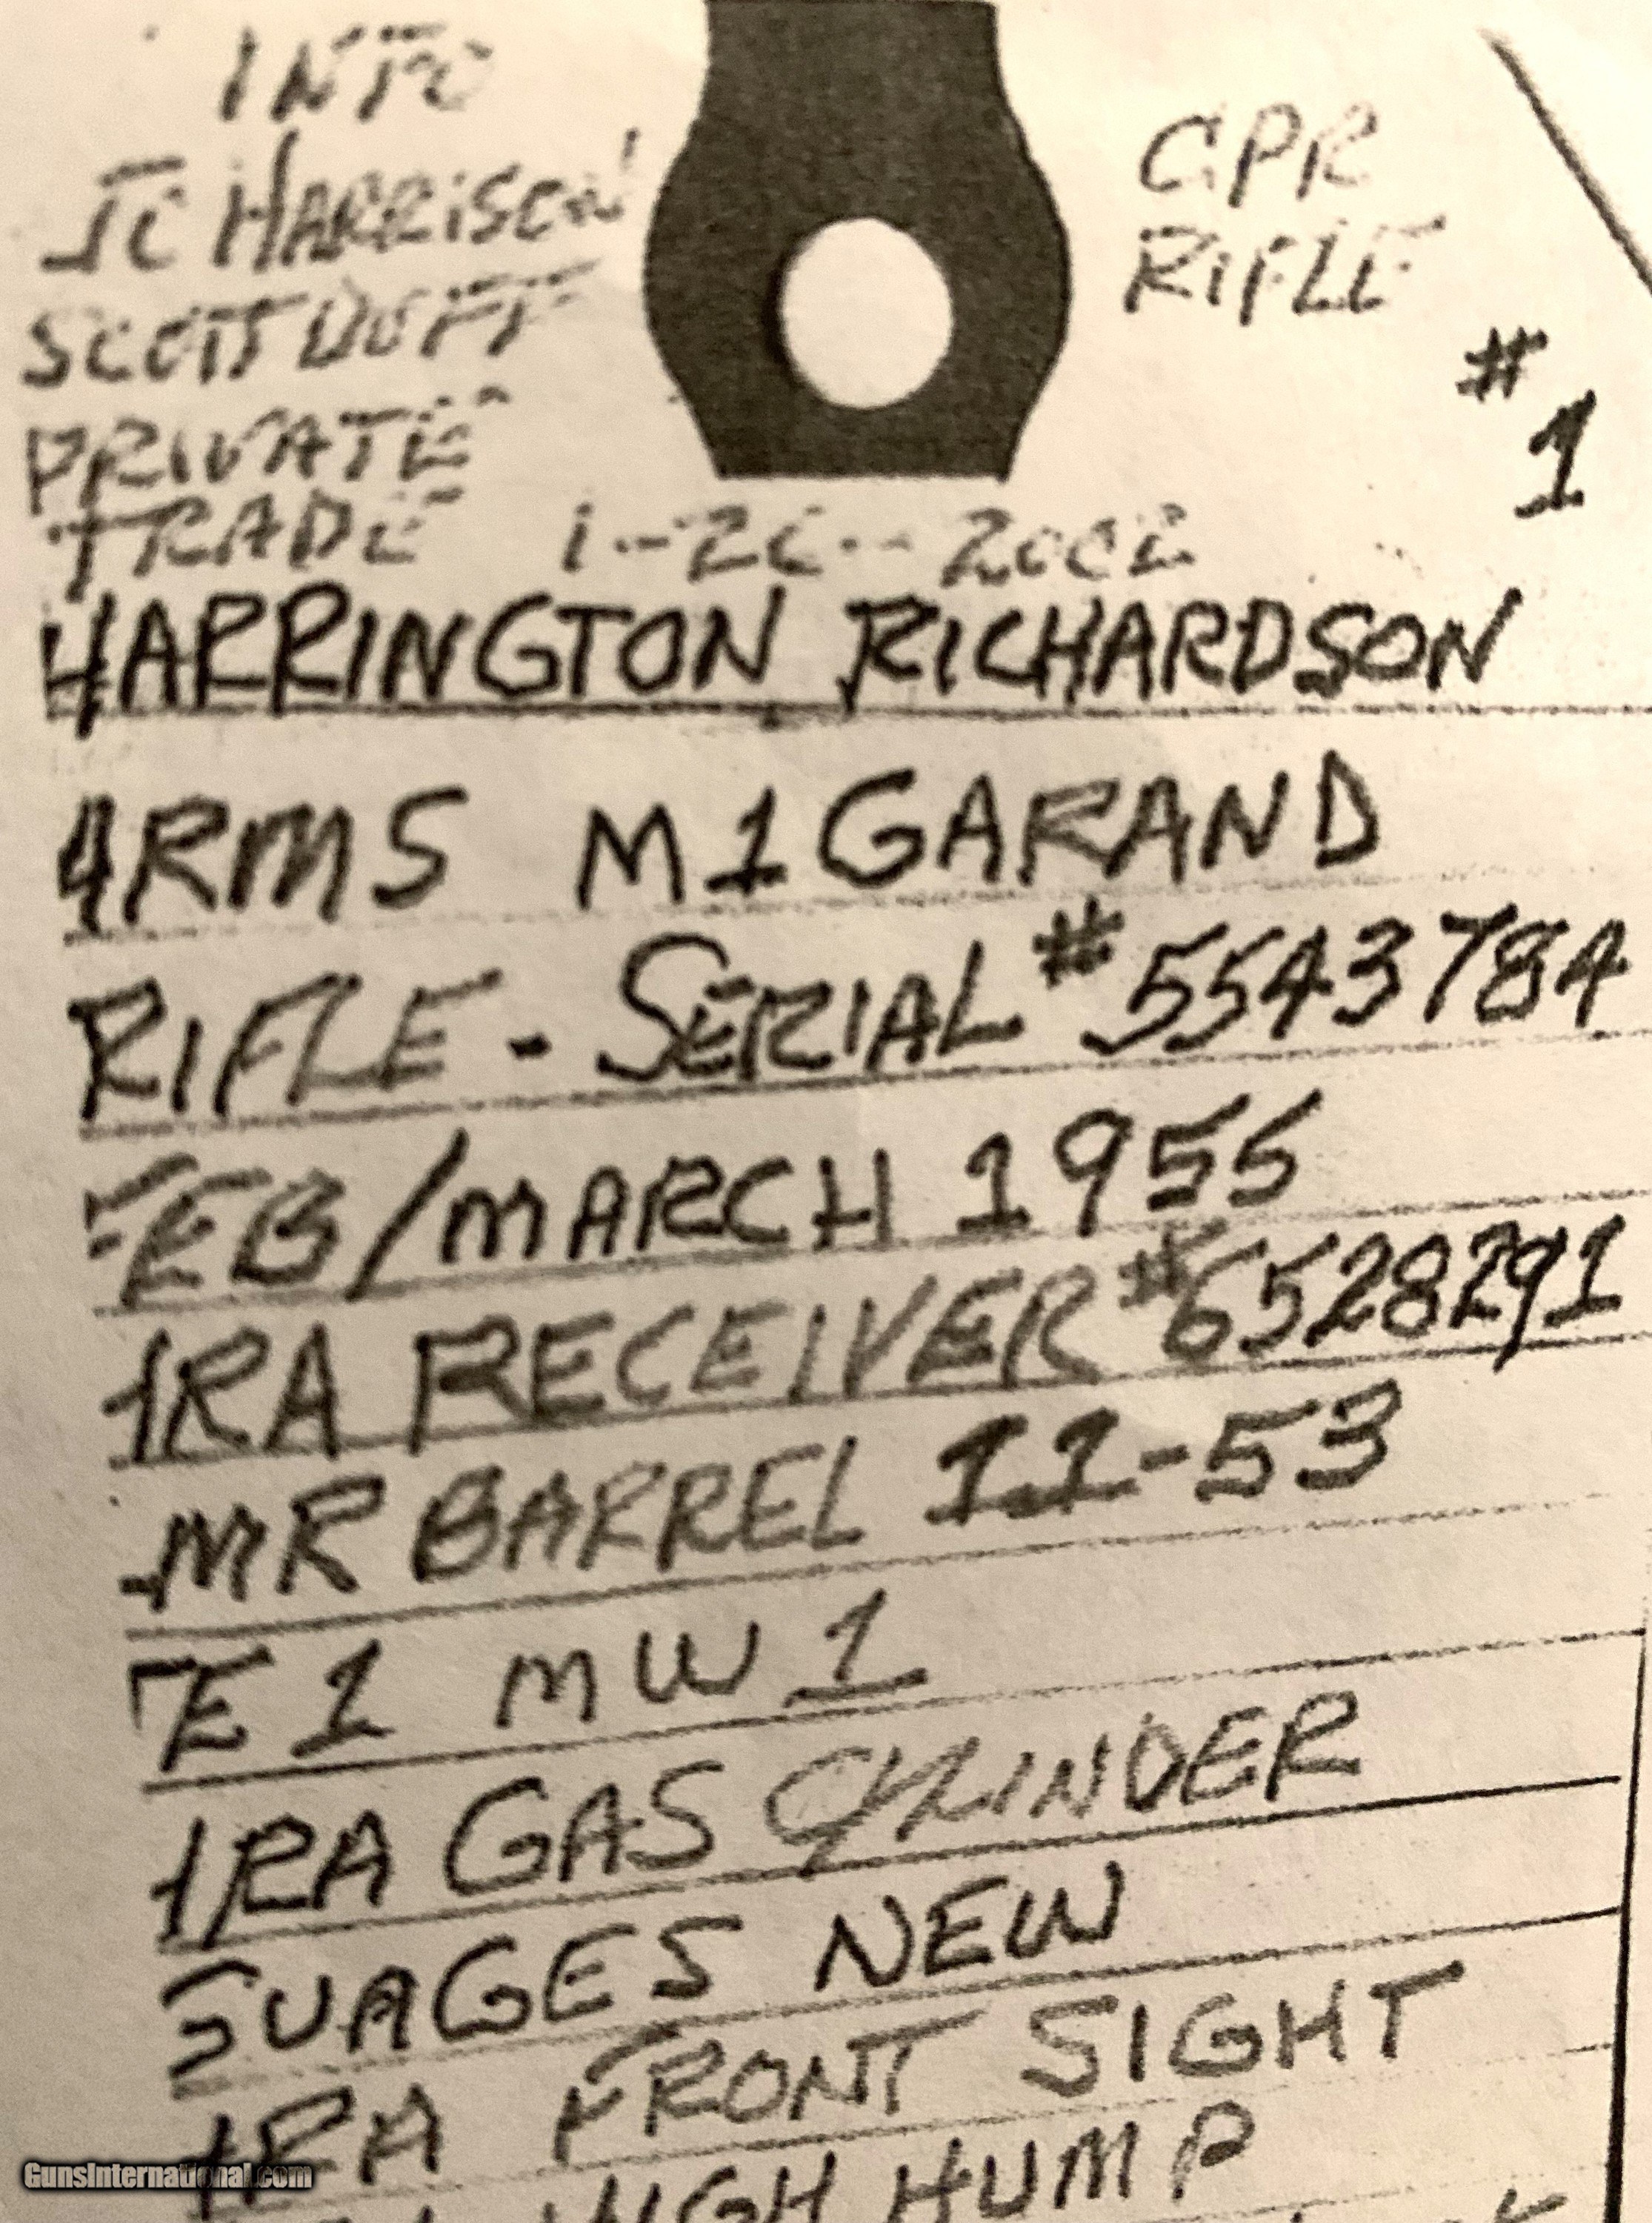 INFO
JC HARRISON
SCOTT DUFF
PRIVATE
TRADE 1-26-2002
RIFLE
#
1
HARRINGTON RICHARDSON
ARMS M1 GARAND
RIFLE - SERIAL #5543784
FEB/MARCH 1955
HRA RECEIVER #6528291
MR BARREL 11-53
TE 1 MW 1
HRA GAS CYLINDER
GUAGES NEW
HRA FRONT SIGHT
HIGH HUMP
GunsInternational.com